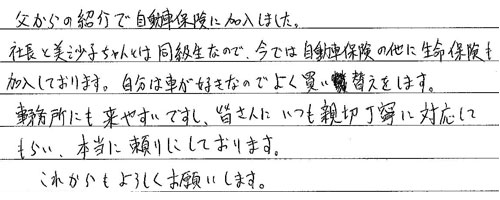 父からの紹介で自動車保険に加入しました。
社長と美沙子ちゃんとは同級生なので、今では自動車保険の他に生命保険も
加入しております。自分は車が好きなのでよく買い替えをします。
事務所にも来やすいですし、皆さんにいつも親切丁寧に対応して
もらい、本当に頼りにしております。
これからもよろしくお願いします。